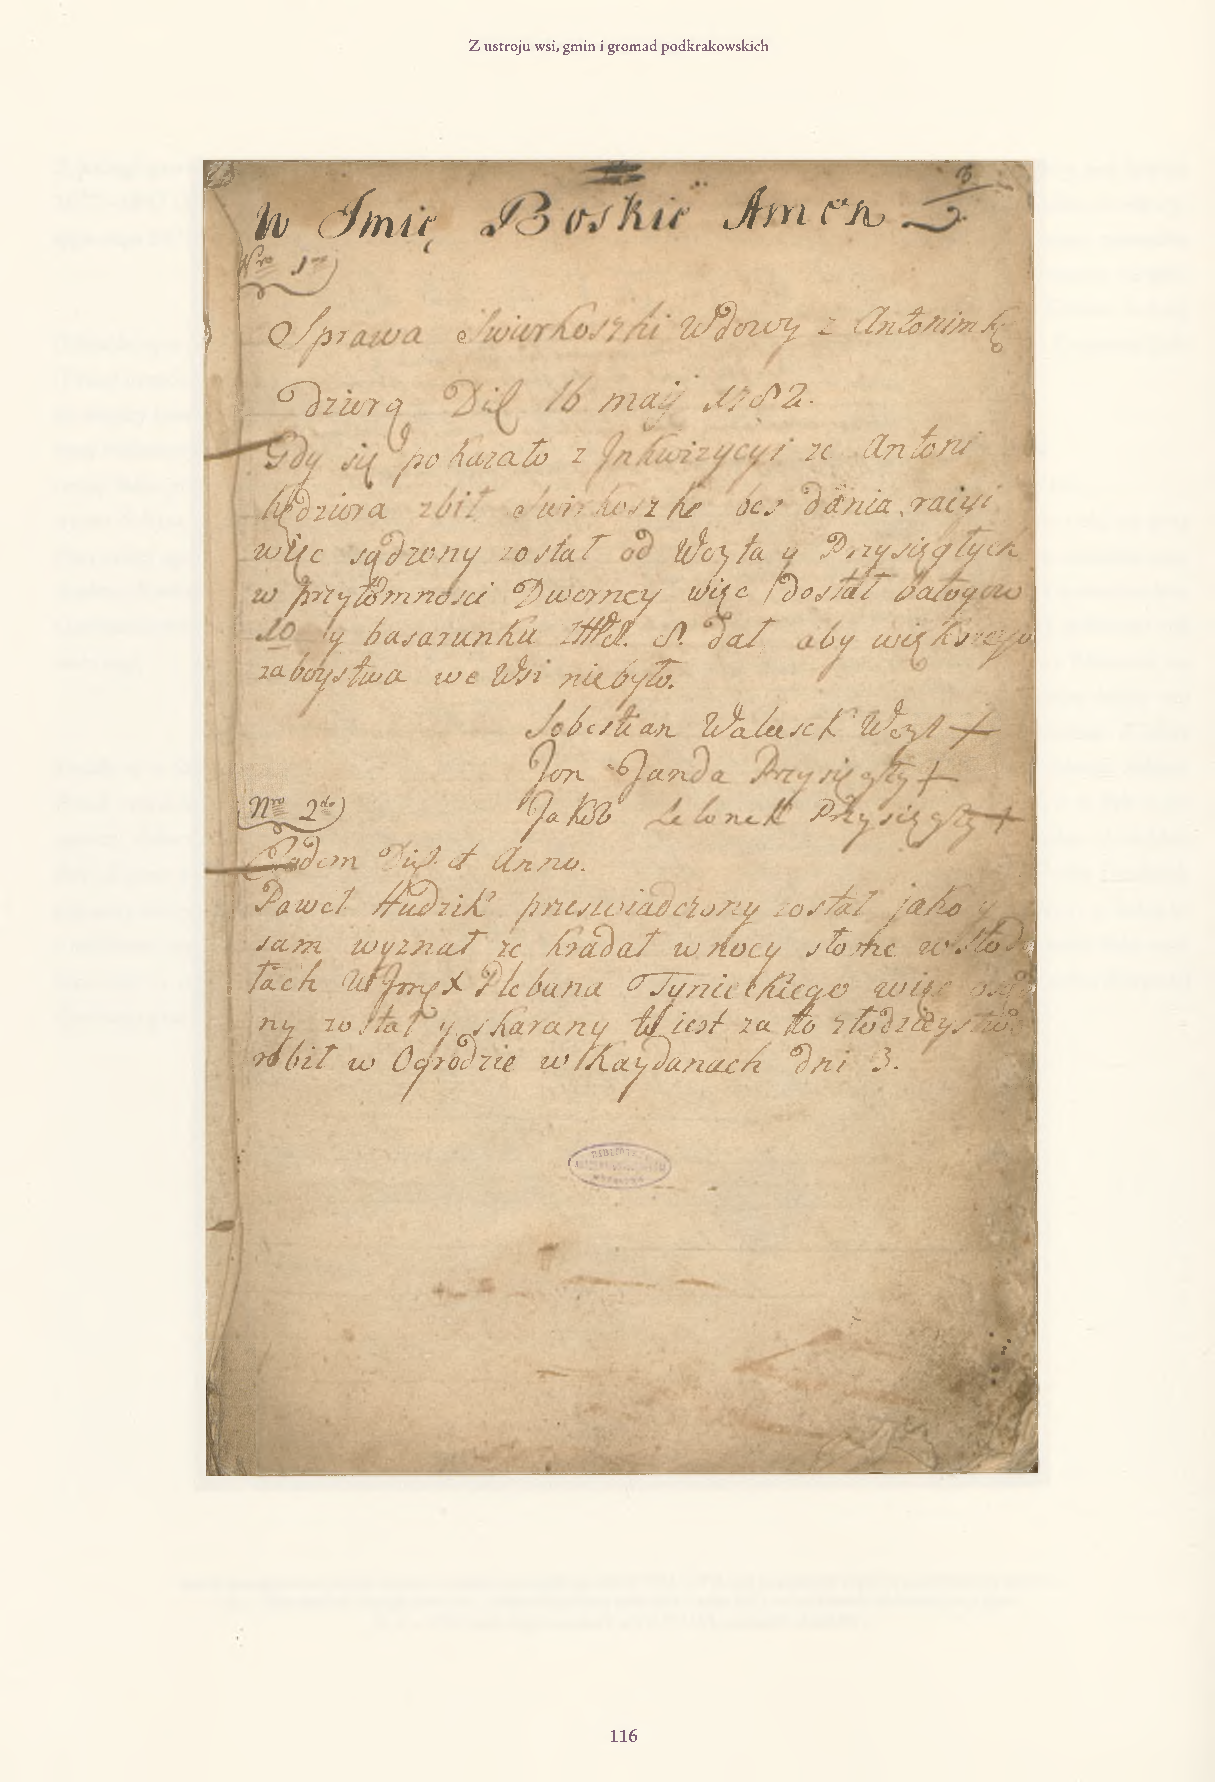 Z ustroju wsi, gmin i gromad podkrakowskich
W Imię Boskie Amen
3
2
Nro 1mo
Sprawa Swierkoszki Wdowy z Antonim Kę
dziorą Die 16 maij 1782.
Gdy się pokazało z Jnkwizycyi ze Antoni
Kędziora zbił Swirkoszke bes dania raciyi
więc sądzony został od Woyta y Przysięgłych
w przytomności Dworney więc dostał batogow
10 y basarunku 8. dał aby większego
zaboystwa we Wsi niebyło.
Sobestian Walusek Woyt +
Jon Janda Przysięgły +
Nro 2do
Jakob Lelonek Przysięgły +
Eadem Die et Anno.
Paweł Hudzik przeswiadczony został jako y
sam wyznał ze Kradał w nocy słome w Stodo
łach WJmęX Plebana Tynieckiego więc
ny został y skarany iest za to złodzieystwo
robił w Ogrodzie w Kaydanach dni 3.
116